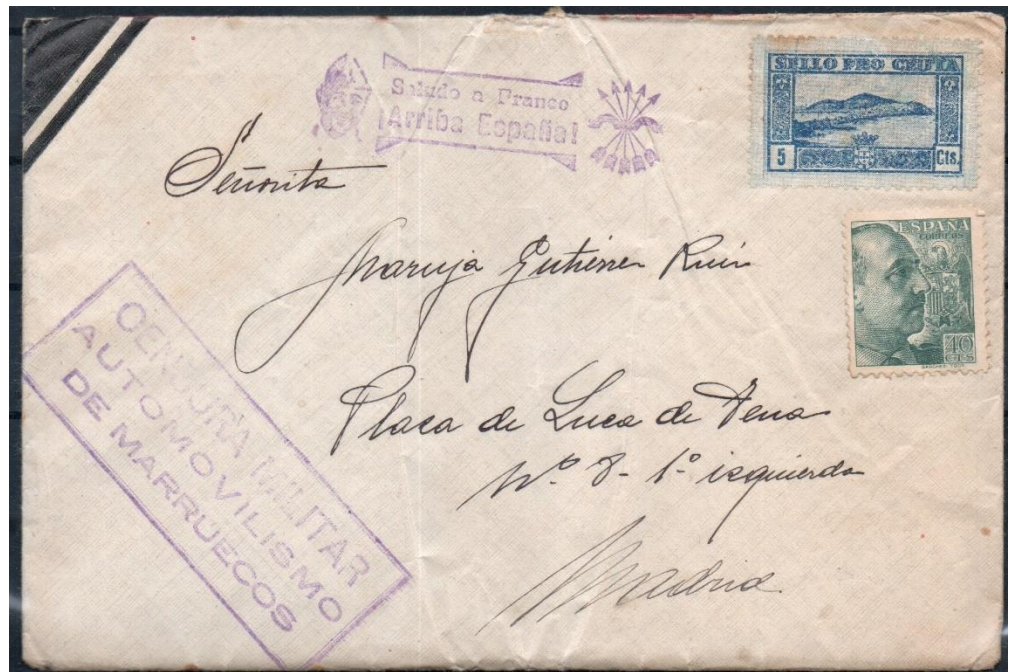 Saludo a Franco
¡Arriba España!
SELLO PRO CEUTA
5 Cts.
ESPAÑA
CORREOS
40
CTS
Señorita
Maruja Gutiérrez Ruiz
Plaza de Luca de Tena
Nº. 8 - 1º izquierda
Madrid
CENSURA MILITAR
AUTOMOVILISMO
DE MARRUECOS